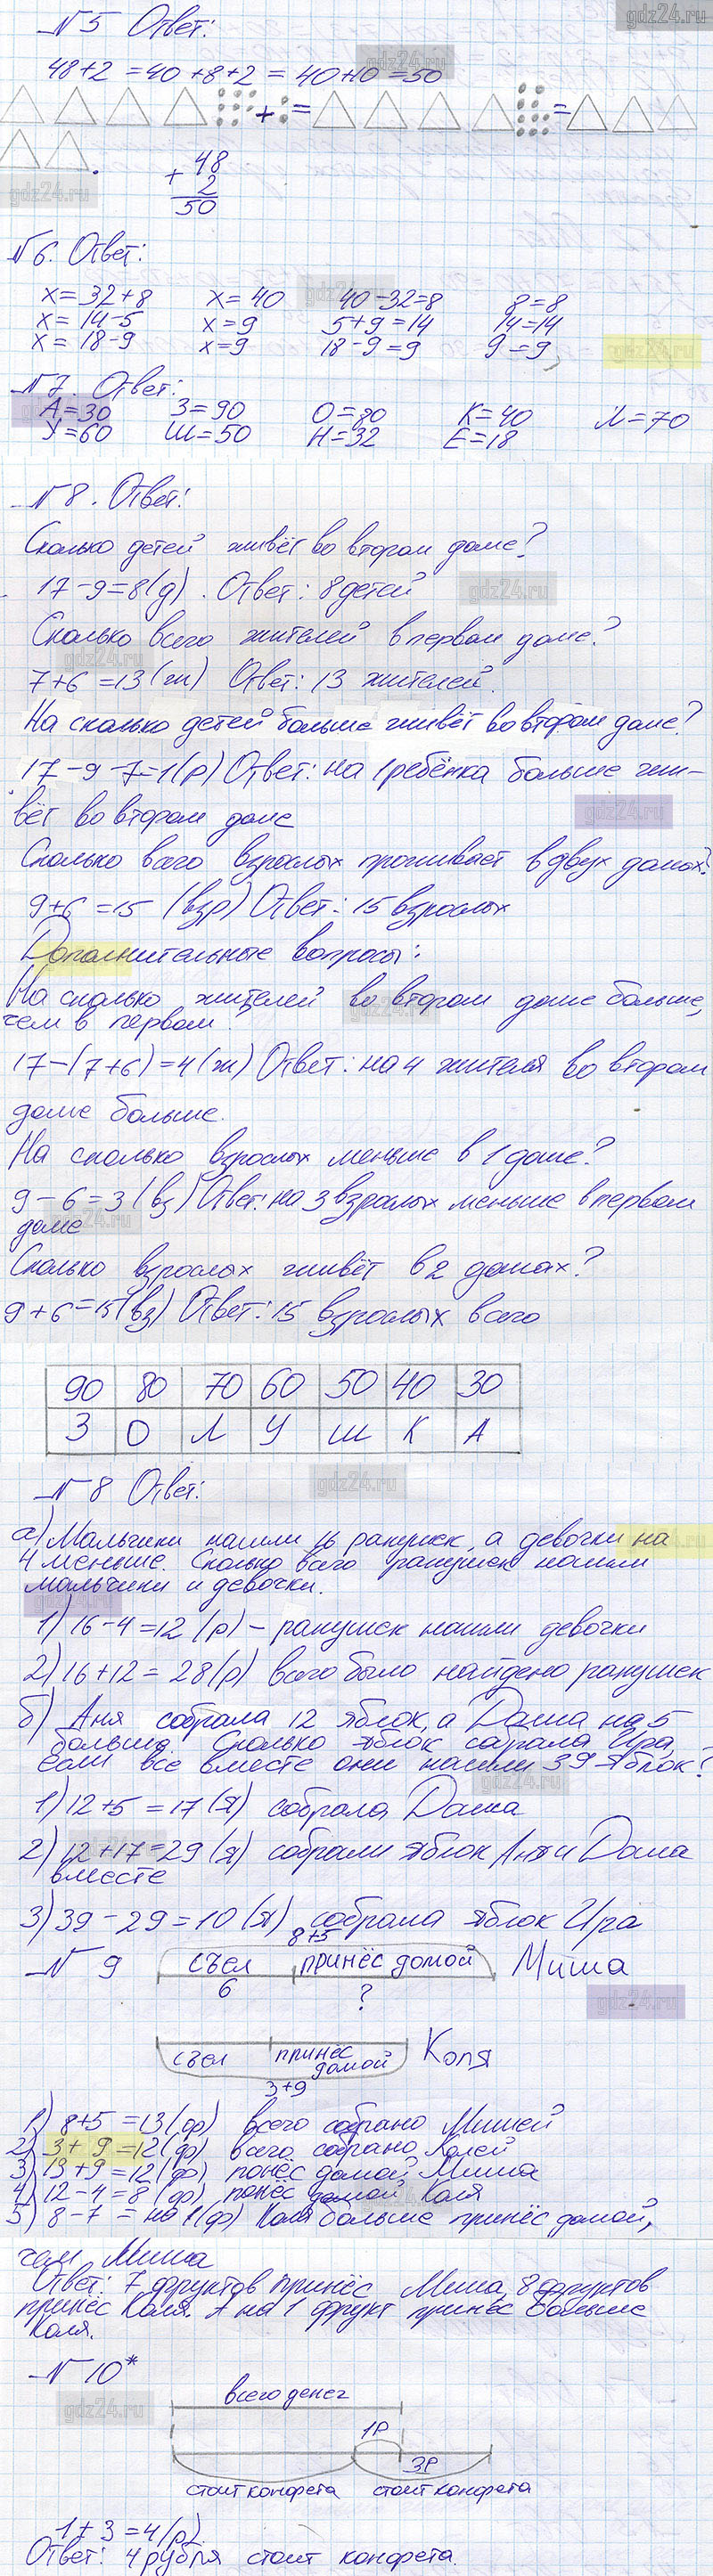 gdz24.ru
№5 Ответ:
gdz24.ru
48+2 =40 +8+2 = 40+10 =50
+ = =
gdz24.ru
+ 48
2
50
№6. Ответ:
gdz24.ru
x= 32+8 x= 40 40-32=8 8=8
x= 14-5 x=9 5+9=14 14=14
x= 18-9 x=9 18-9=9 9=9
gdz24.ru
№7. Ответ:
А=30 З=90 О=80 К=40 Л=70
У=60 Ш=50 Н=32 Е=18
№8. Ответ:
Сколько детей живёт во втором доме?
17-9=8(д). Ответ: 8 детей
gdz24.ru
Сколько всего жителей в первом доме?
gdz24.ru
7+6 =13(ж) Ответ: 13 жителей.
На сколько детей больше живёт во втором доме?
17-9-7=1(р) Ответ: на 1 ребёнка больше жи-
gdz24.ru
вёт во втором доме
Сколько всего взрослых проживает в двух домах?
9+6 =15 (взр) Ответ: 15 взрослых
Дополнительные вопросы:
На сколько жителей во втором доме больше,
gdz24.ru
чем в первом.
17-(7+6)=4(ж) Ответ: на 4 жителя во втором
доме больше.
На сколько взрослых меньше в 1 доме?
9-6=3(вз) Ответ: на 3 взрослых меньше в первом
gdz24.ru
доме
Сколько взрослых живёт в 2 домах?
9+6=15(вз) Ответ: 15 взрослых всего
90 80 70 60 50 40 30
З О Л У Ш К А
№8 Ответ:
gdz24.ru
а) Мальчики нашли 16 ракушек, а девочки на
4 меньше. Сколько всего ракушек нашли
мальчики и девочки.
gdz24.ru
1) 16-4=12 (р) - ракушек нашли девочки
2) 16+12= 28(р) всего было найдено ракушек
б) Аня собрала 12 яблок, а Даша на 5
больше. Сколько яблок собрала Ира,
если все вместе они нашли 39 яблок?
gdz24.ru
1) 12+5 =17(я) собрала Даша
2) 12+17=29(я) собрали яблок Аня и Даша
вместе
3) 39-29=10(я) собрала яблок Ира
8+5
№9 съел принёс домой Миша
6 ?
gdz24.ru
съел принёс домой Коля
3+9
1) 8+5 =13(ф) всего собрано Мишей
2) 3+9=12(ф) всего собрано Колей
3) 13+9=12(ф) понёс домой Миша
4) 12-4=8 (ф) понёс домой Коля
5) 8-7 = на 1(ф) Коля больше принёс домой,
чем Миша
Ответ: 7 фруктов принёс Миша, 8 фруктов
принёс Коля. А на 1 фрукт принёс больше
Коля.
№10*
всего денег
gdz24.ru
1р
3р
стоит конфета стоит конфета
1+3=4(р).
Ответ: 4 рубля стоит конфета.